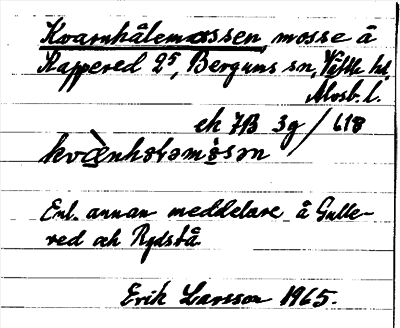 Kvarnhålemossen, mosse å
Rappered 2⁵, Bergums sn, Vättle hd,
Älvsb. l.
ek 7B 3g / 618
kvænholəmòsən
Enl. annan meddelare å Gulle-
red och Rydstå
Erik Larsson 1965.